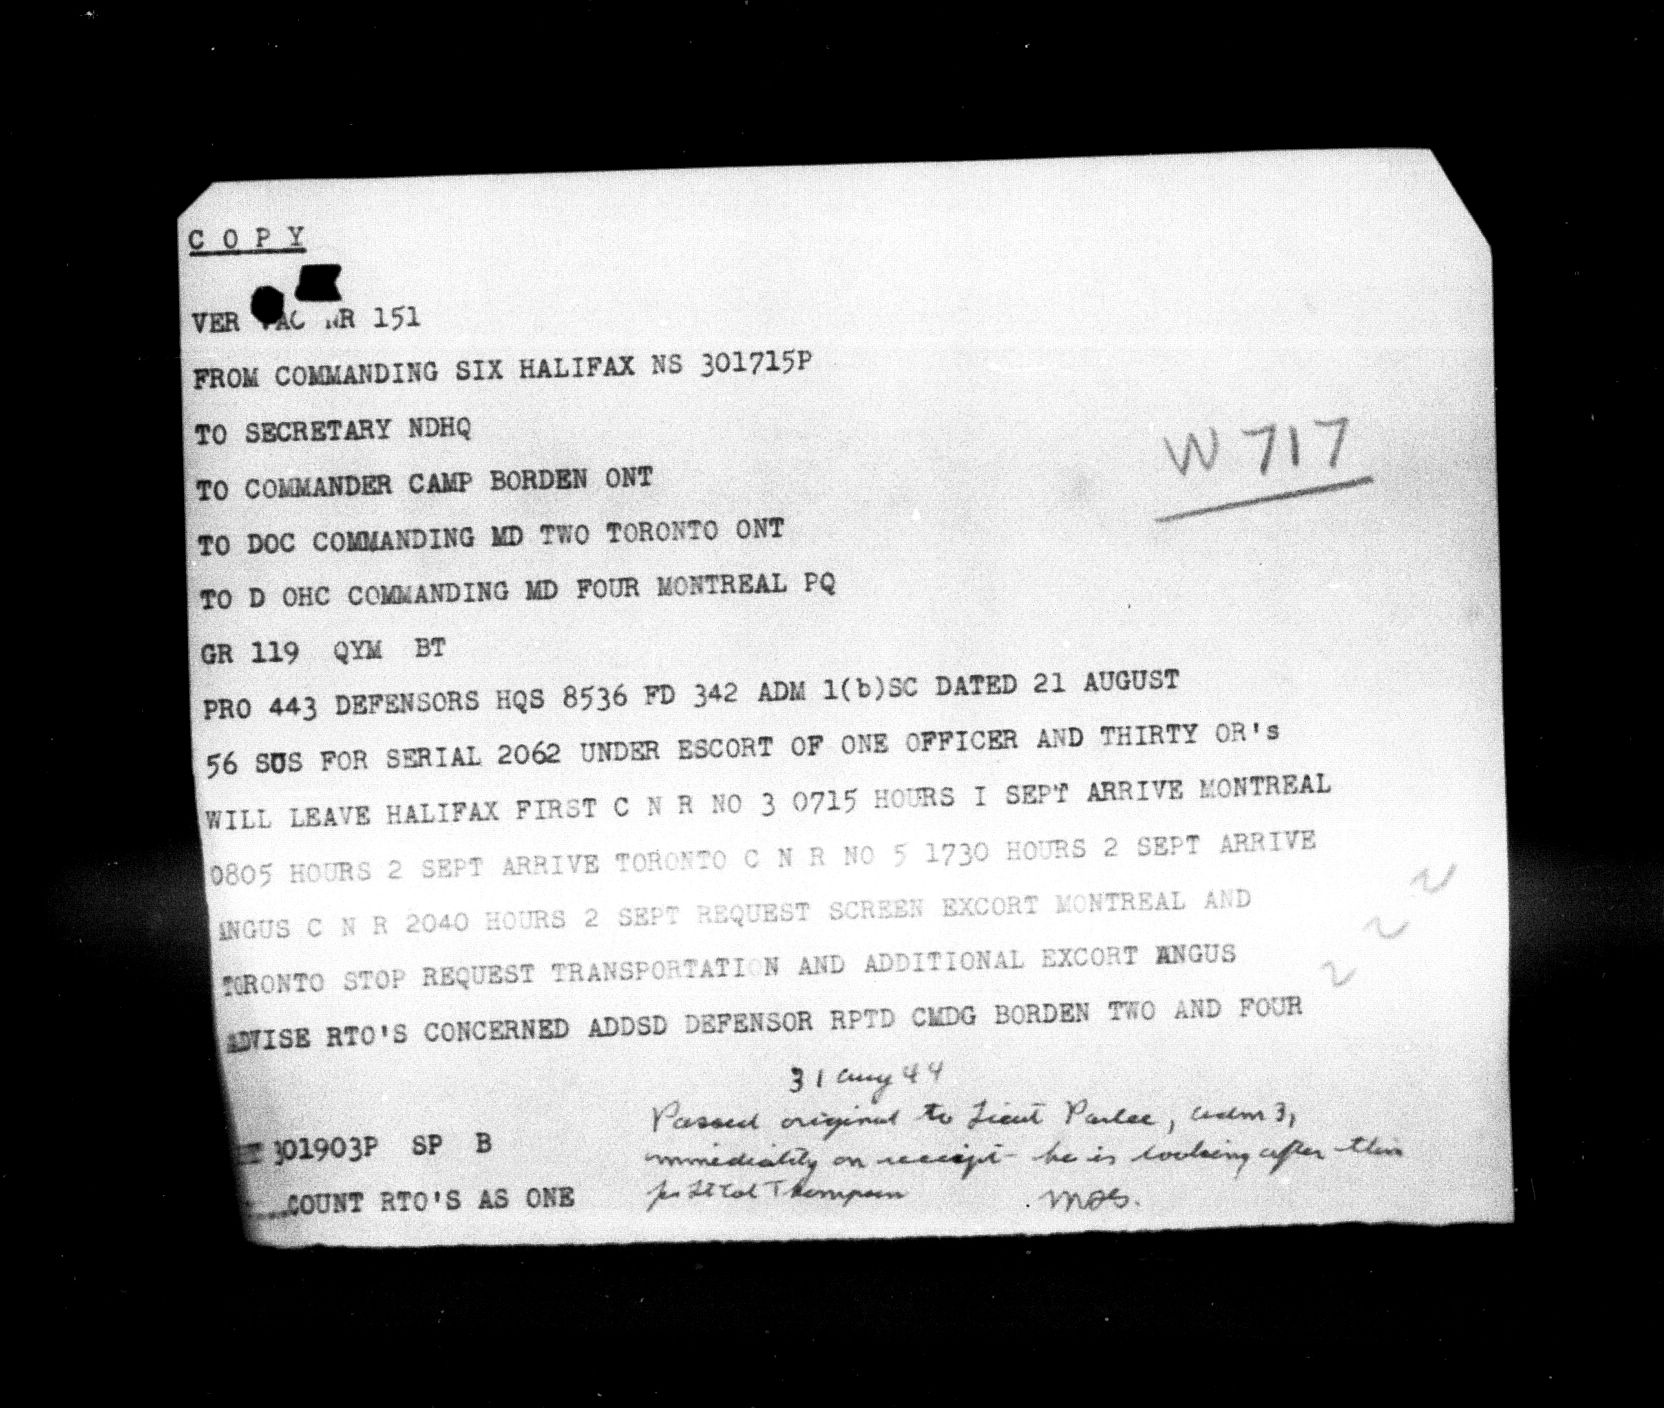 C O P Y
VER VAC NR 151
FROM COMMANDING SIX HALIFAX NS 301715P
TO SECRETARY NDHQ
TO COMMANDER CAMP BORDEN ONT
TO DOC COMMANDING MD TWO TORONTO ONT
TO D OHC COMMANDING MD FOUR MONTREAL PQ
W 717
GR 119 QYM BT
PRO 443 DEFENSORS HQS 8536 FD 342 ADM 1(b)SC DATED 21 AUGUST
56 SUS FOR SERIAL 2062 UNDER ESCORT OF ONE OFFICER AND THIRTY OR's
WILL LEAVE HALIFAX FIRST C N R NO 3 0715 HOURS I SEPT ARRIVE MONTREAL
0805 HOURS 2 SEPT ARRIVE TORONTO C N R NO 5 1730 HOURS 2 SEPT ARRIVE
ANGUS C N R 2040 HOURS 2 SEPT REQUEST SCREEN EXCORT MONTREAL AND
TORONTO STOP REQUEST TRANSPORTATION AND ADDITIONAL EXCORT ANGUS
ADVISE RTO'S CONCERNED ADDSD DEFENSOR RPTD CMDG BORDEN TWO AND FOUR
31 Aug 44
Passed original to Lieut Parlee, Adm 3,
immediately on receipt - he is looking after this
for Lt Col Thompson
301903P SP B
COUNT RTO'S AS ONE